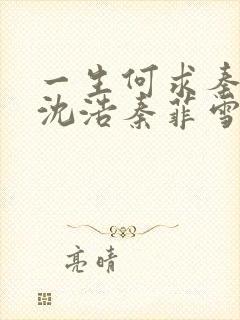 一生何求秦
沈浩秦菲雪
亮晴